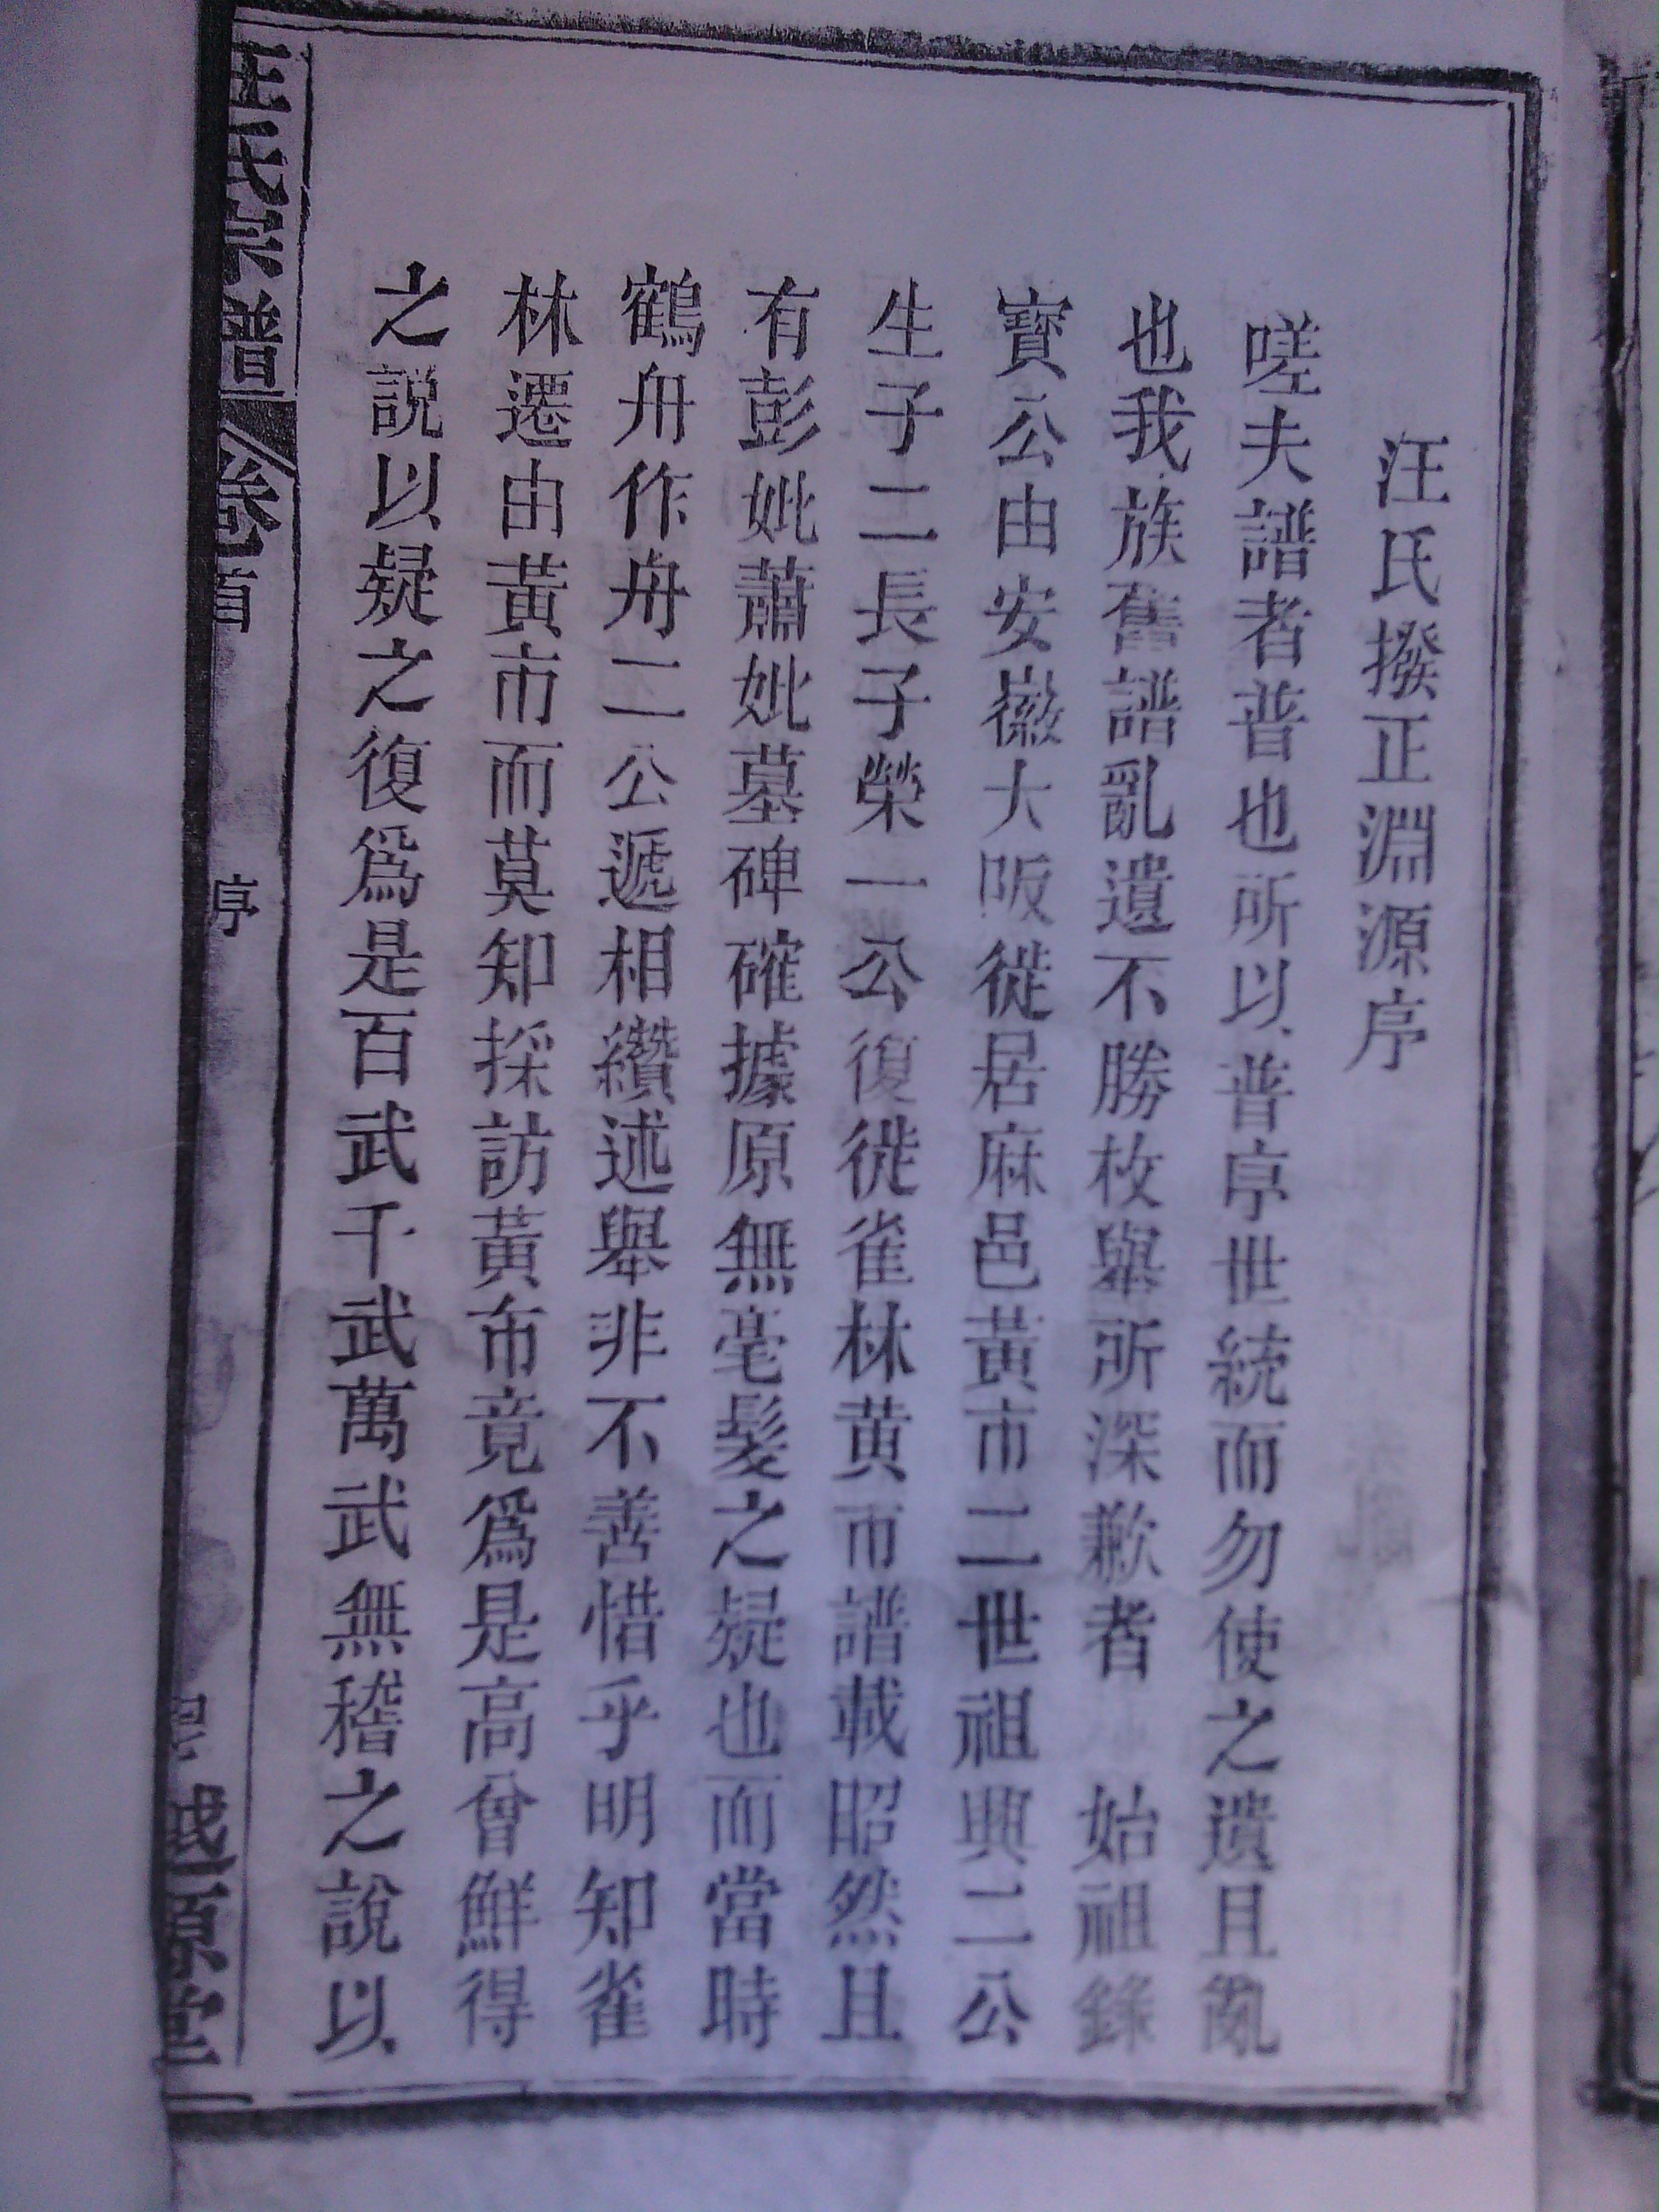 汪氏撥正淵源序
嗟夫譜者普也所以普序世統而勿使之遺且亂
也我族舊譜亂遺不勝枚舉所深歉者　始祖錄
寶公由安徽大阪徙居麻邑黃市二世祖興二公
生子二長子榮一公復徙雀林黃市譜載昭然且
有彭妣蕭妣墓碑確據原無毫髮之疑也而當時
鶴舟作舟二公遞相纘述舉非不善惜乎明知雀
林遷由黃市而莫知採訪黃市竟為是高曾鮮得
之說以疑之復為是百武千武萬武無稽之說以
汪氏宗譜
卷首
序
源堂